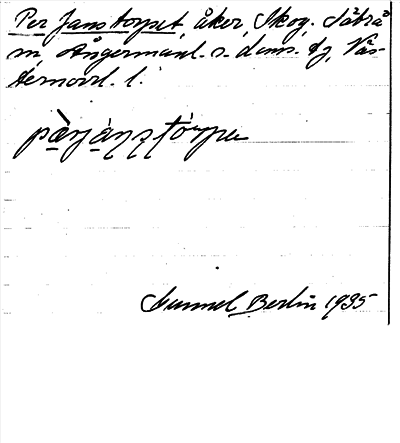 Per Janstorpet, åker, Skog, Säbrå
sn, Ångermanl. s. doms. tg, Väs-
ternorrl. l.
pärjánstórpe
Gunnel Berlin 1935